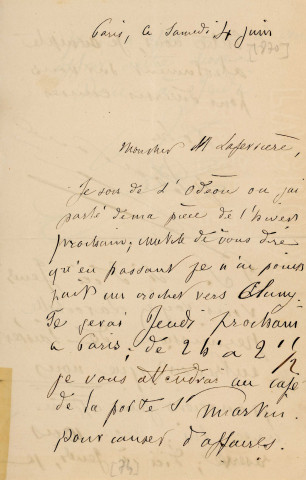 Paris, ce Samedi 4 juin
[1870]
Mon cher Mr Laferrière,
Je sors de l'Odéon où j'ai
parlé de ma pièce de l'hiver
prochain; inutile de vous dire
qu'en passant je n'ai point
fait un crochet vers Cluny.
Je serai Jeudi prochain
a Paris, de 2 h à 2 1/2
je vous attendrai au café
de la porte St Martin
pour causer d'affaires.
[74]